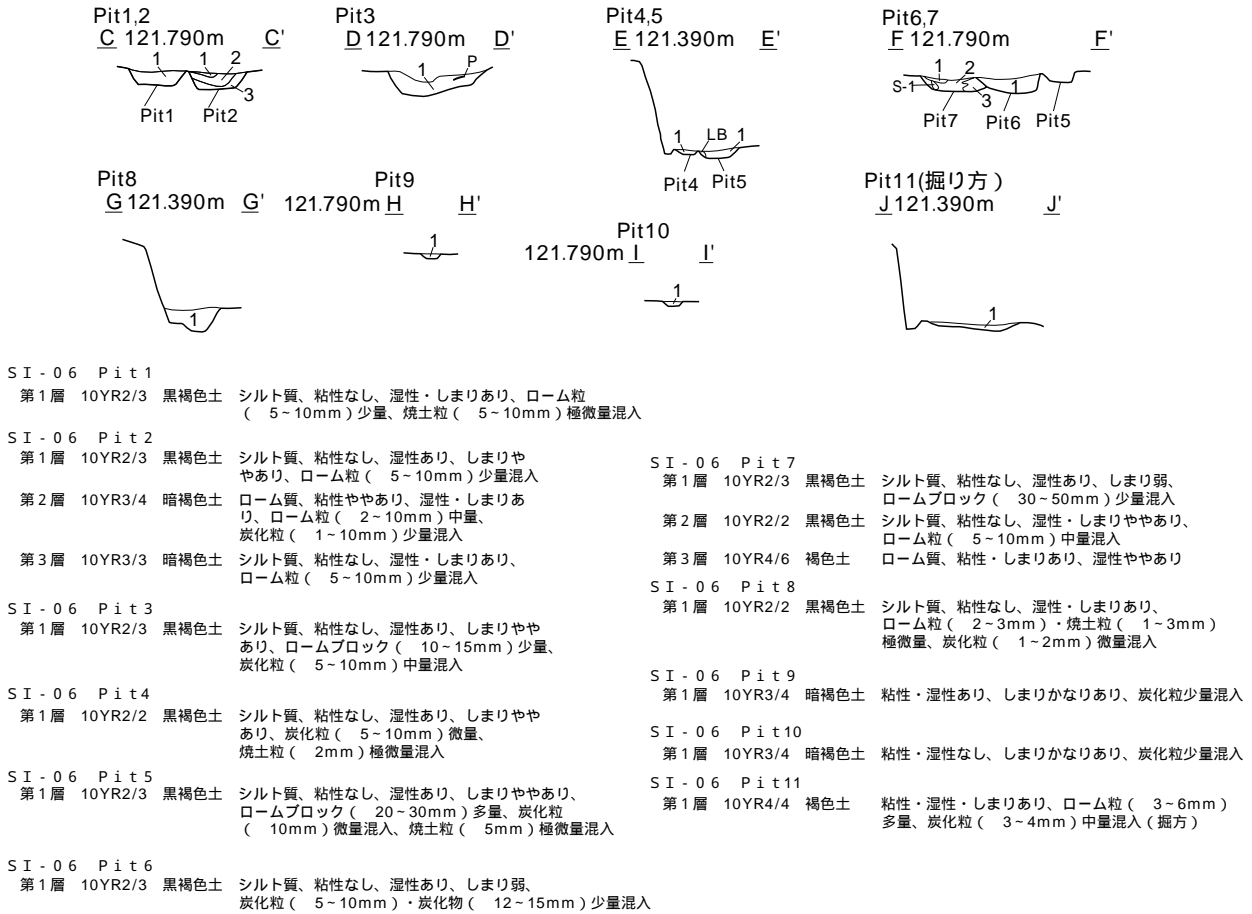 Pit1,2
C 121.790m C'
1 1 2
3
Pit1 Pit2
Pit3
D 121.790m D'
1 P
Pit4,5
E 121.390m E'
1 LB 1
Pit4 Pit5
Pit6,7
F 121.790m F'
1 2
S-1 3 1
Pit7 Pit6 Pit5
Pit8
G 121.390m G'
1
Pit9
121.790m H H'
1
Pit10
121.790m I I'
1
Pit11(掘り方)
J 121.390m J'
1
SI-06 Pit1
第1層 10YR2/3 黒褐色土 シルト質、粘性なし、湿性・しまりあり、ローム粒
( 5~10mm)少量、焼土粒( 5~10mm)極微量混入
SI-06 Pit2
第1層 10YR2/3 黒褐色土 シルト質、粘性なし、湿性あり、しまりや
やあり、ローム粒( 5~10mm)少量混入
第2層 10YR3/4 暗褐色土 ローム質、粘性ややあり、湿性・しまりあ
り、ローム粒( 2~10mm)中量、
炭化粒( 1~10mm)少量混入
第3層 10YR3/3 暗褐色土 シルト質、粘性なし、湿性・しまりあり、
ローム粒( 5~10mm)少量混入
SI-06 Pit3
第1層 10YR2/3 黒褐色土 シルト質、粘性なし、湿性あり、しまりやや
あり、ロームブロック( 10~15mm)少量、
炭化粒( 5~10mm)中量混入
SI-06 Pit4
第1層 10YR2/2 黒褐色土 シルト質、粘性なし、湿性あり、しまりやや
あり、炭化粒( 5~10mm)微量、
焼土粒( 2mm)極微量混入
SI-06 Pit5
第1層 10YR2/3 黒褐色土 シルト質、粘性なし、湿性あり、しまりややあり、
ロームブロック( 20~30mm)多量、炭化粒
( 10mm)微量混入、焼土粒( 5mm)極微量混入
SI-06 Pit6
第1層 10YR2/3 黒褐色土 シルト質、粘性なし、湿性あり、しまり弱、
炭化粒( 5~10mm)・炭化物( 12~15mm)少量混入
SI-06 Pit7
第1層 10YR2/3 黒褐色土 シルト質、粘性なし、湿性あり、しまり弱、
ロームブロック( 30~50mm)少量混入
第2層 10YR2/2 黒褐色土 シルト質、粘性なし、湿性・しまりややあり、
ローム粒( 5~10mm)中量混入
第3層 10YR4/6 褐色土 ローム質、粘性・しまりあり、湿性ややあり
SI-06 Pit8
第1層 10YR2/2 黒褐色土 シルト質、粘性なし、湿性・しまりあり、
ローム粒( 2~3mm)・焼土粒( 1~3mm)
極微量、炭化粒( 1~2mm)微量混入
SI-06 Pit9
第1層 10YR3/4 暗褐色土 粘性・湿性あり、しまりかなりあり、炭化粒少量混入
SI-06 Pit10
第1層 10YR3/4 暗褐色土 粘性・湿性なし、しまりかなりあり、炭化粒少量混入
SI-06 Pit11
第1層 10YR4/4 褐色土 粘性・湿性・しまりあり、ローム粒( 3~6mm)
多量、炭化粒( 3~4mm)中量混入(掘方)